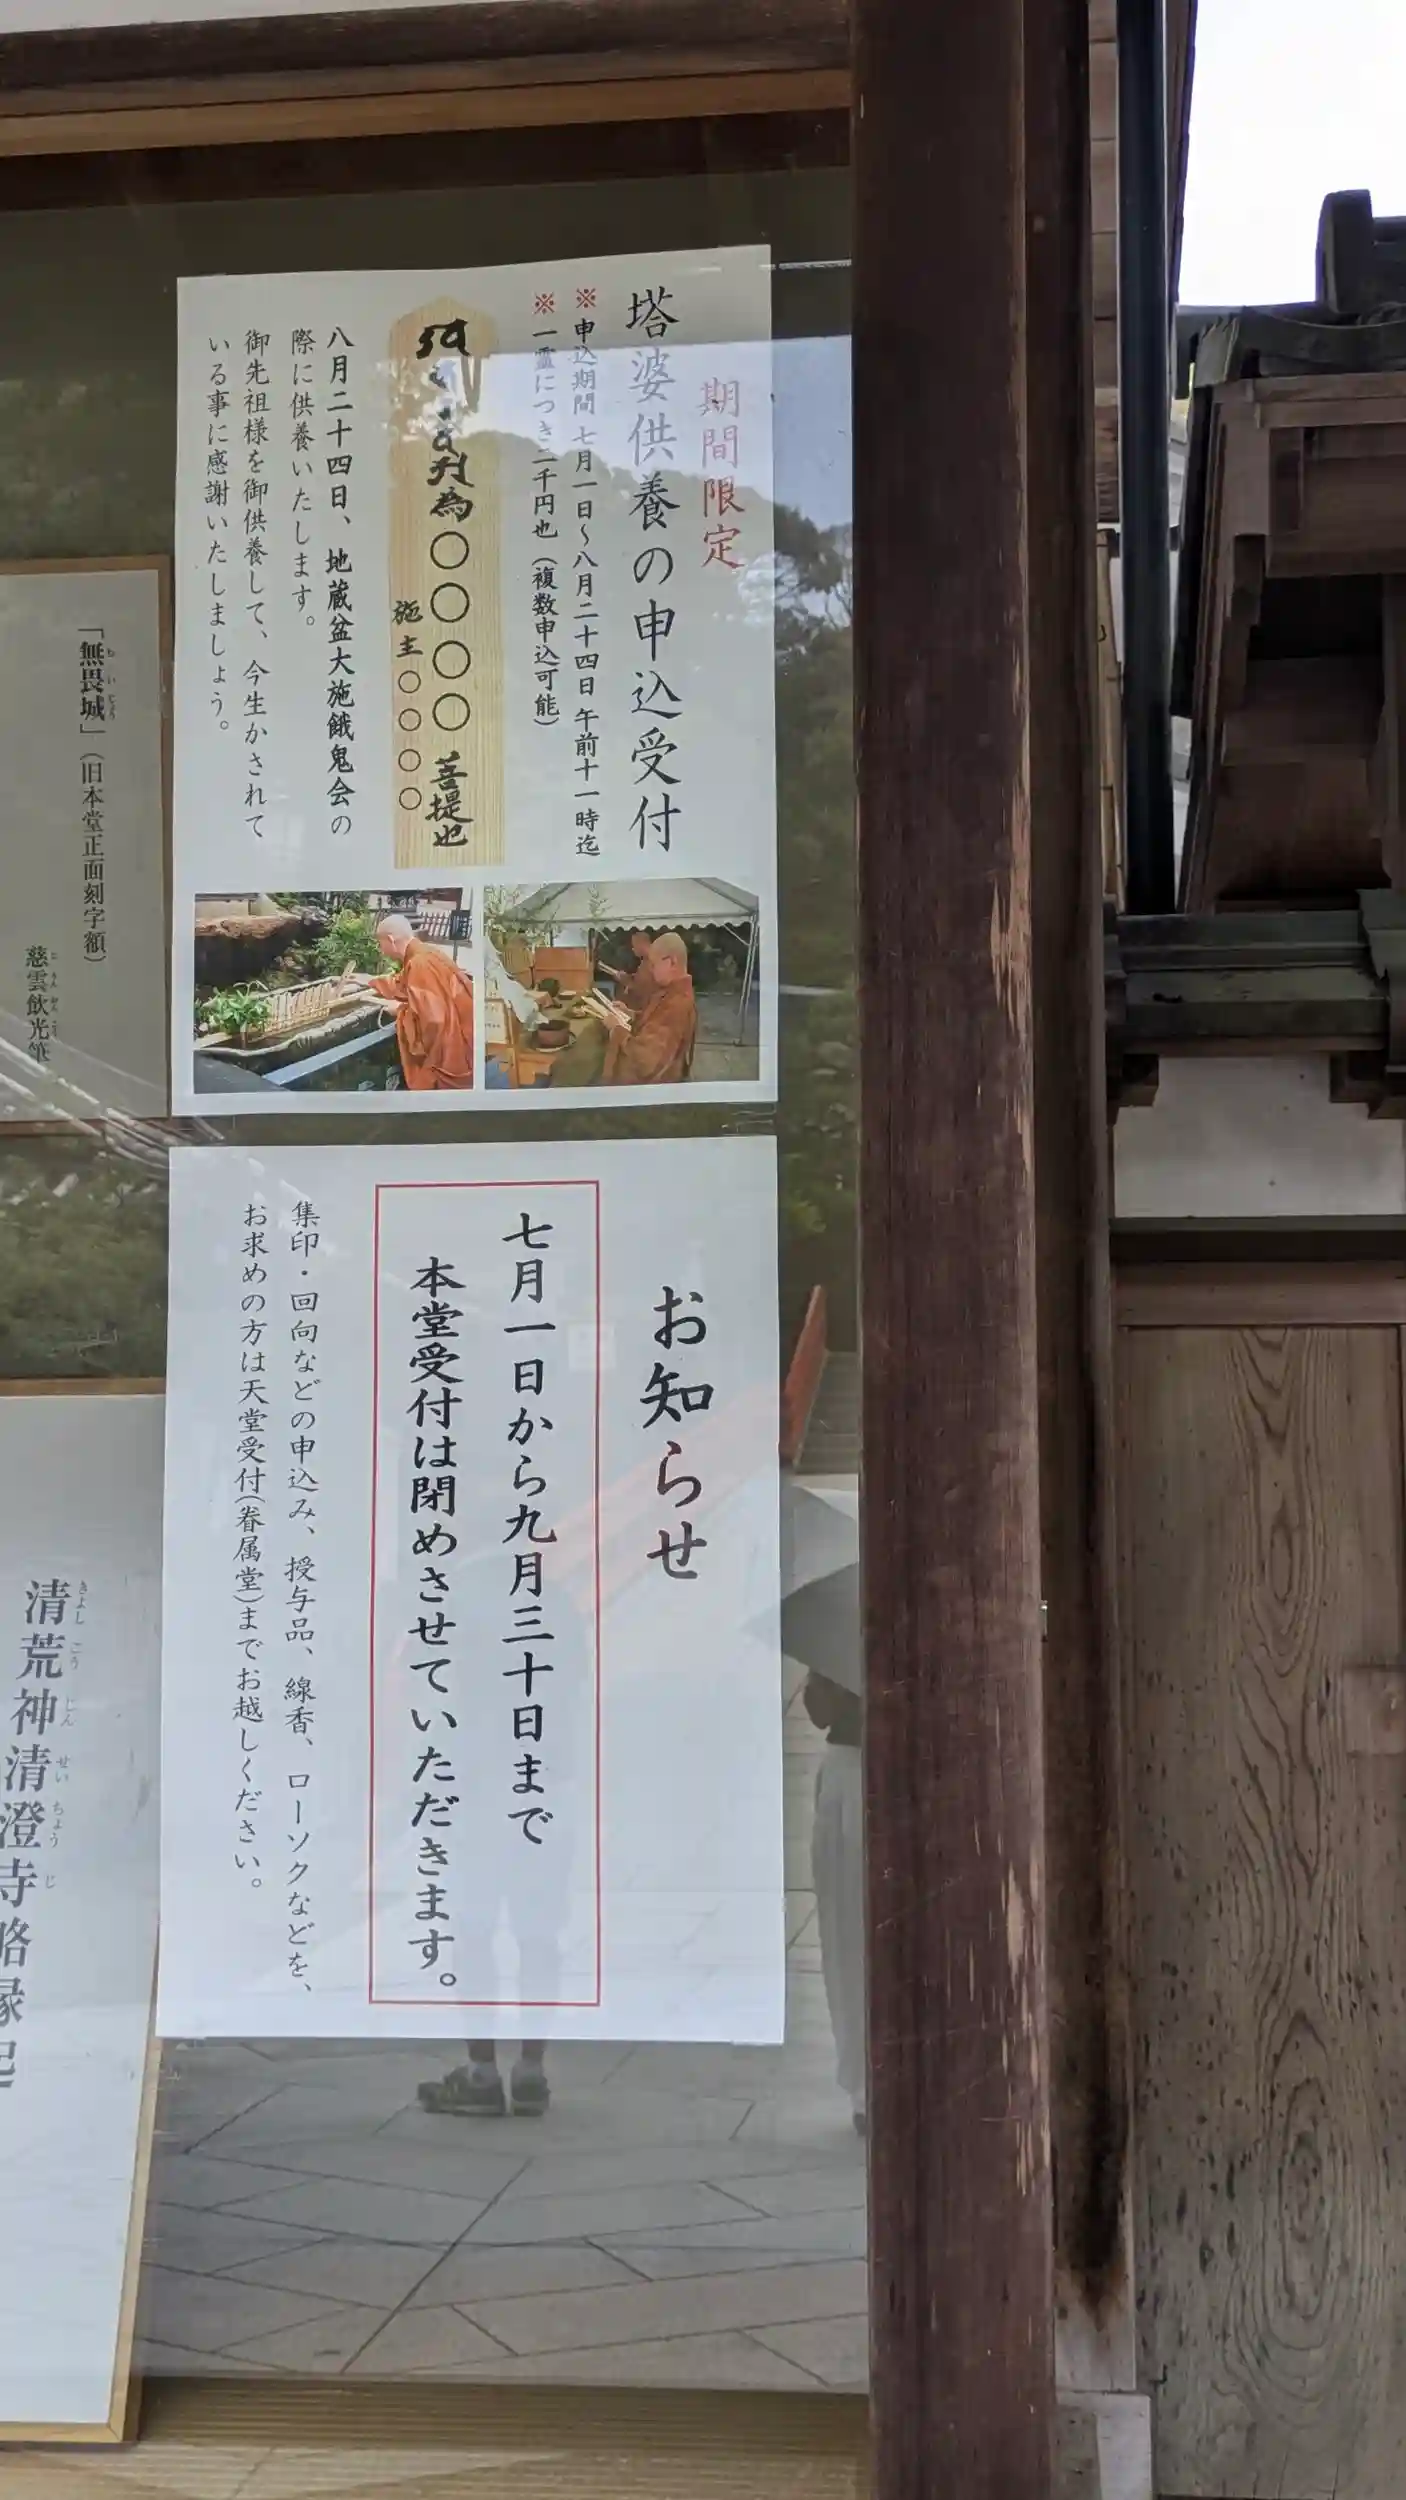 期間限定
塔婆供養の申込受付
※申込期間 七月一日~八月二十四日 午前十一時迄
※一霊につき二千円也(複数申込可能)
為〇〇〇〇菩提也
施主〇〇〇〇
八月二十四日、地蔵盆大施餓鬼会の
際に供養いたします。
御先祖様を御供養して、今生かされて
いる事に感謝いたしましょう。
お知らせ
七月一日から九月三十日まで
本堂受付は閉めさせていただきます。
集印・回向などの申込み、授与品、線香、ローソクなどを、
お求めの方は天堂受付(眷属堂)までお越しください。
「無畏城」(旧本堂正面刻字額)
慈雲飲光筆
清荒神清澄寺略縁起
きよし こうじん せいちょうじ